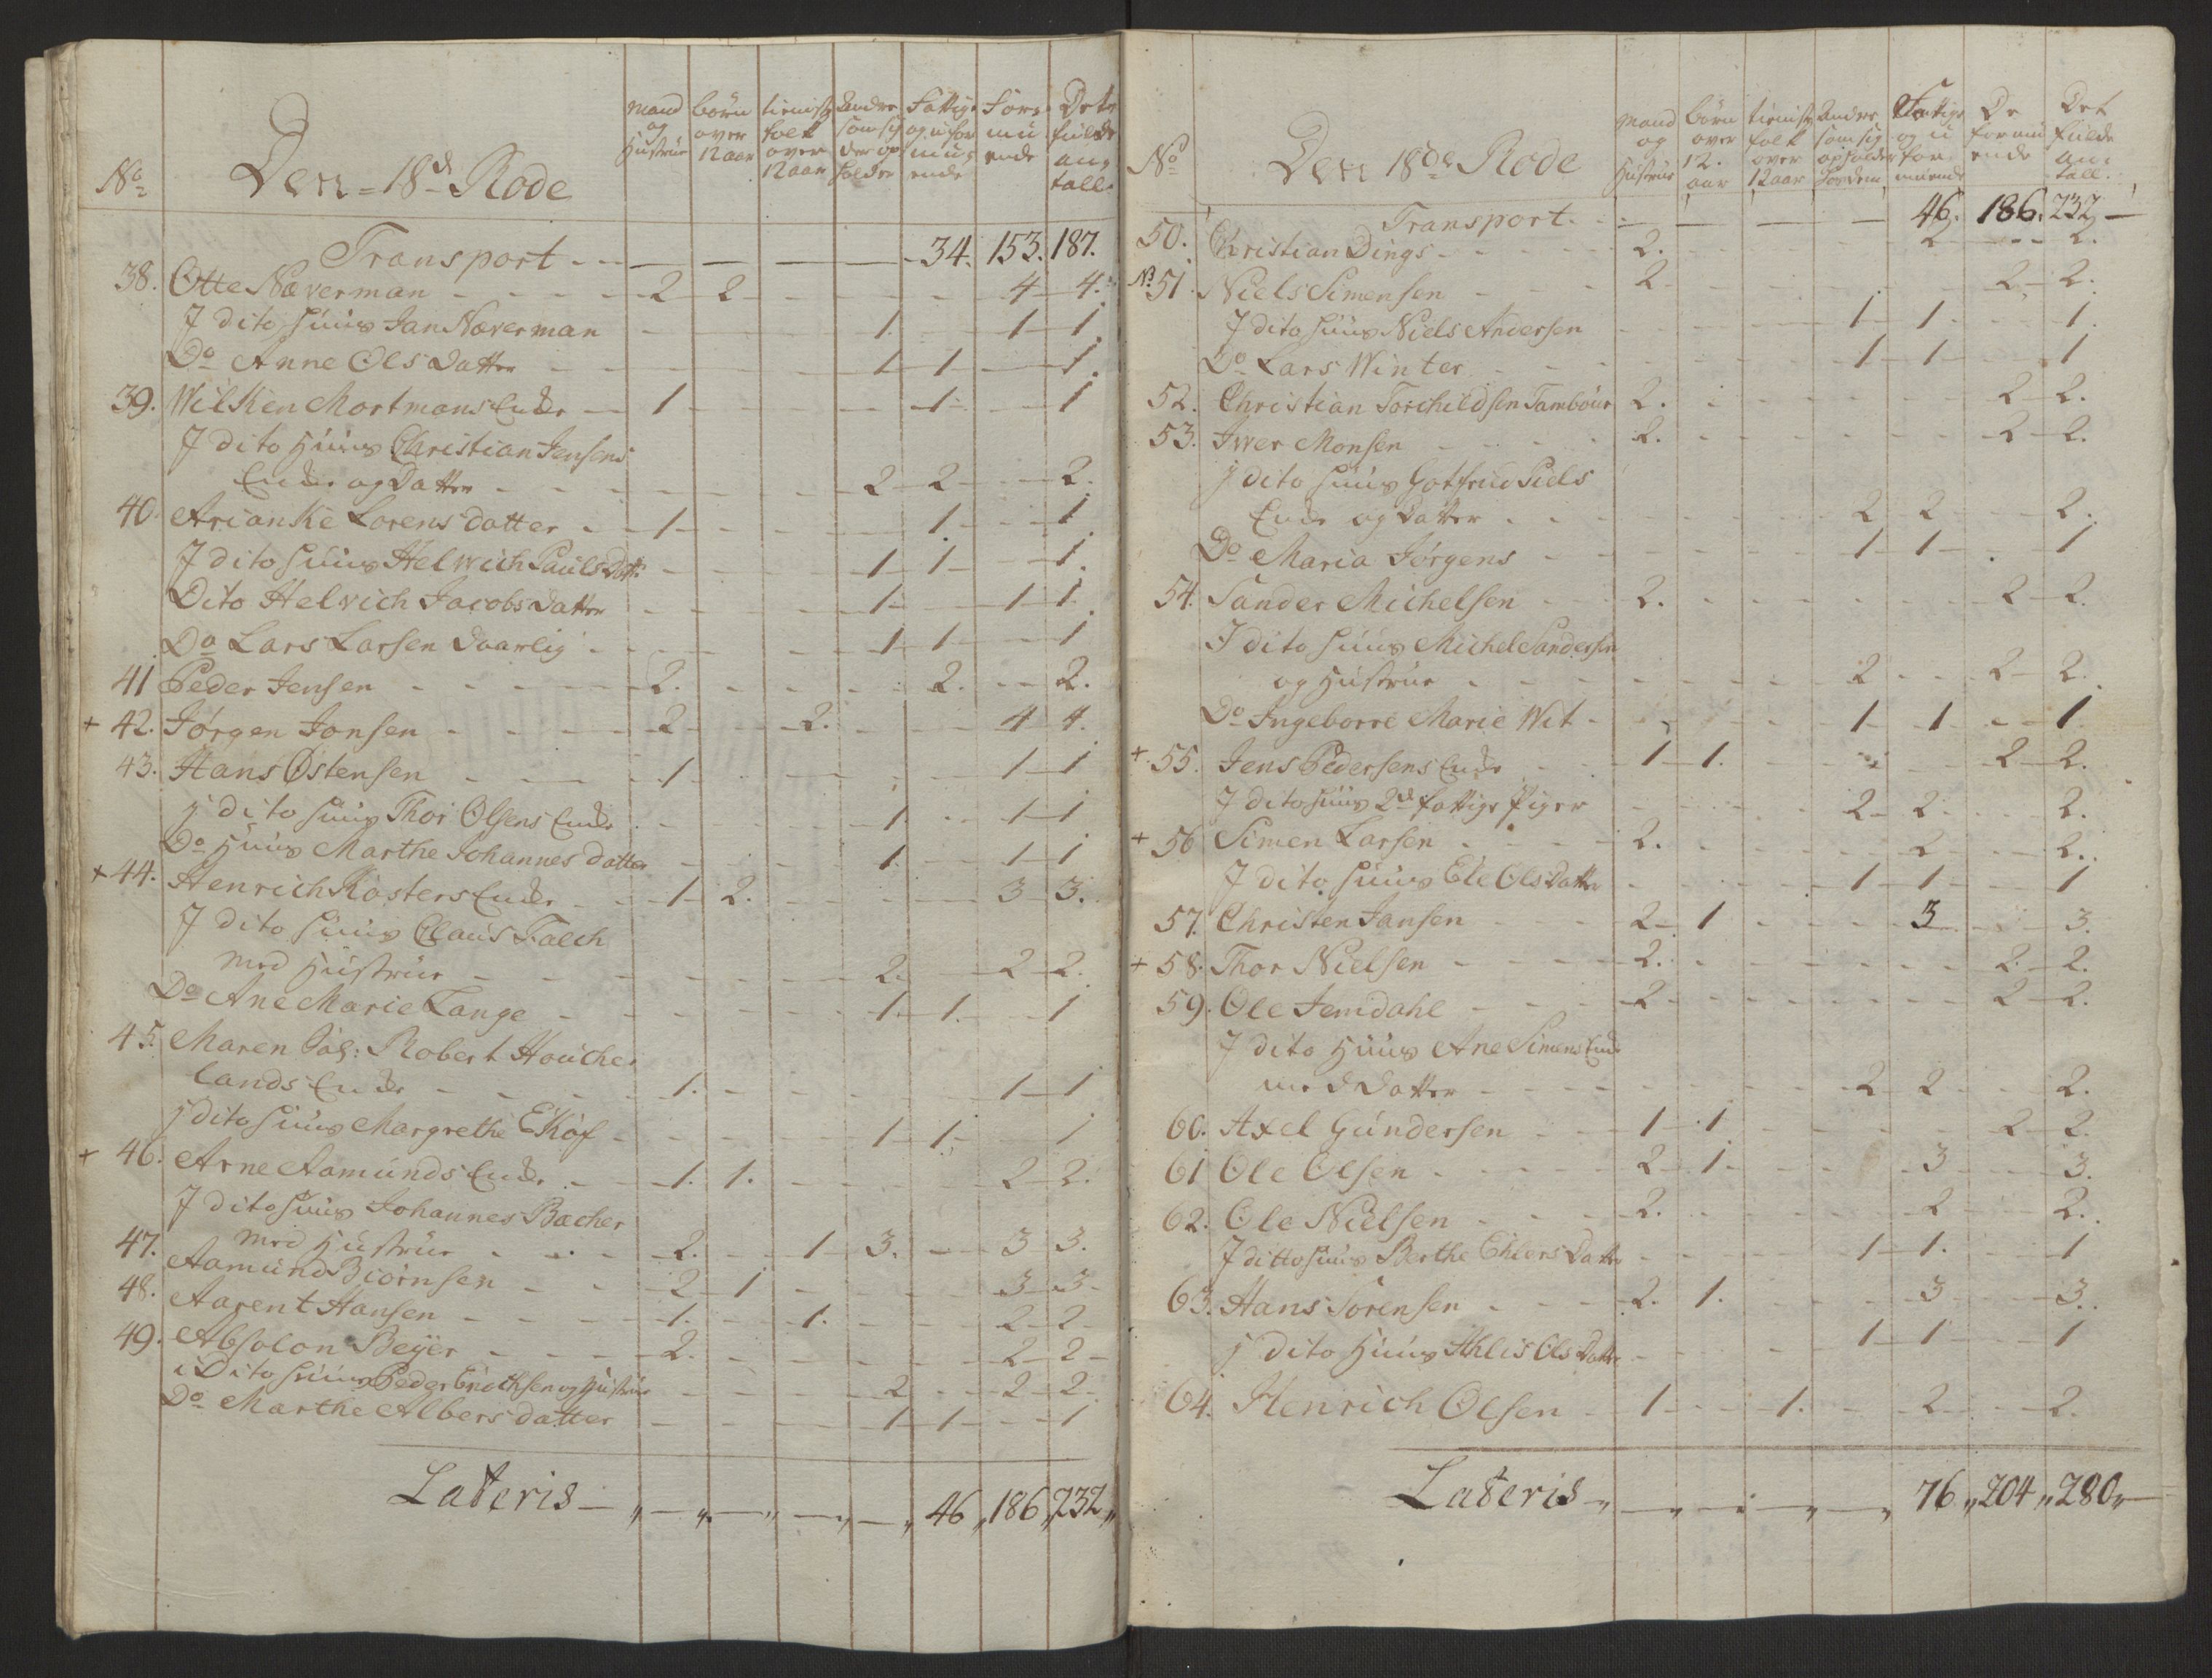 No Den 18d Rode
mand og Hustrue
børn over 12 aar
tienist folk over 12 aar
Andre som sig der op holder
Fattige og u for mu ende
For mu ende
Det fulde an tall
Transport - - 34. 153. 187.
38. Otte Næverman - 2 - 2 - 4 - 4.
I dito Huus Jan Næverman - 1. - 1 - 1.
Do Anne Ols Datter - 1 - 1 - 1.
39. Wilken Mortmans Enke - 1 - 1 - 1
I dito Huus Christian Jensens
Enke og Datter - 2 - 2 - 2.
40. Arianke Lorens datter - 1 - 1 - 1.
I dito Huus Helwich Pauls Datt: - 1 - 1 - 1.
Dito Helvich Jacobs Datter - 1 - 1 - 1.
Do Lars Larsen Daarlig - 1 - 1 - 1
41 Peder Jensen - 2. - 2. - 2.
+ 42. Jørgen Jonsen - 2 - 2. - 4 4.
43. Hans Østensen - 1 - 1 - 1
j dito Huus Thor Olsens Enke - 1 - 1 - 1
Do Huus Marthe Johannes datter - 1. - 1 - 1
+ 44. Henrich Kosters Enke - 1 - 2. - 3 3.
I dito Huus Claus Falch
med Hustrue - 2. - 2 - 2.
Do Ane Marie Lange - 1. - 1. - 1
45. Maren Sal: Robert Houche
lands Enke - 1. - 1 - 1
j dito Huus Margrethe Ekof - 1 - 1. - 1
+ 46. Arne Aamunds Enke - 1. 1. - 2 - 2.
I dito Huus Johannes Bacher
med Hustrue - 2. - 1 - 3. - 3 3.
47. Aamund Biørnsen - 2 - 1 - 3 - 3 -
48. Aarent Hansen - 1. - 1. - 2 - 2 -
49. Absolon Beÿer - 2. - 2 - 2 -
i Dito Huus Peder Erichsen og Hustrue - 2 - 2 - 2 -
Do Marthe Albers datter - 1 - 1 - 1
Lateris - 46 „ 186 „ 232 „
No Den 18de Rode
mand og Hustrue
børn over 12. aar
tienist folk over 12 aar
Andre som sig opholder hos dem
Fattige og u for muende
De formu ende
Det fulde an: tall.
Transport. - 46. 186. 232 -
50. Christian Dings - 2. - 2 - 2.
No 51. Niels Simensen - 2 - 2 - 2.
I dito Huus Niels Andersen - 1 - 1 - 1.
Do Lars Winter - 1 - 1 - 1
52. Christian Torchildsen Tambour 2. - 2 - 2.
53. Iver Monsen - 2. - 2 - 2.
j dito Huus Gotfried Piels
Enke og Datter - 2 2 - 2.
Do Maria Jørgens - 1 - 1 - 1
54. Sander Michelsen - 2. - 2 - 2.
I dito Huus Michel Sandersen
og Hustrue - 2 - 2 - 2.
Do Ingeborre Marie Wit - 1 - 1 - 1.
+ 55. Jens Pedersens Enke - 1 - 1. - 2 - 2.
I dito Huus 2de fattige Piger - 2 - 2. - 2.
+ 56 Simen Larsen - 2. - 2 - 2.
I dito Huus Ele Ols Datter - 1 - 1 - 1
57. Christen Jansen - 2 - 1 - 3 - 3.
+ 58. Thor Nielsen - 2. - 2. - 2.
59. Ole Jemdahl - 2 - 2 - 2.
I dito Huus Ane Simens Enke
med Datter - 2 2 - 2.
60. Axel Gundersen - 1 - 1 - 2 2.
61 Ole Olsen - 2 - 1 - 3 - 3.
62. Ole Nielsen - 2. - 2 - 2.
I ditto Huus Berthe Ehlers Datter - 1 - 1. - 1
63. Hans Sørensen - 2. 1. - 3 - 3.
j dito Huus Ahlis Ols Datter - 1 - 1 - 1
64. Henrich Olsen - 1 - 1. - 2 - 2.
Lateris - 76 „ 204 „ 280 „